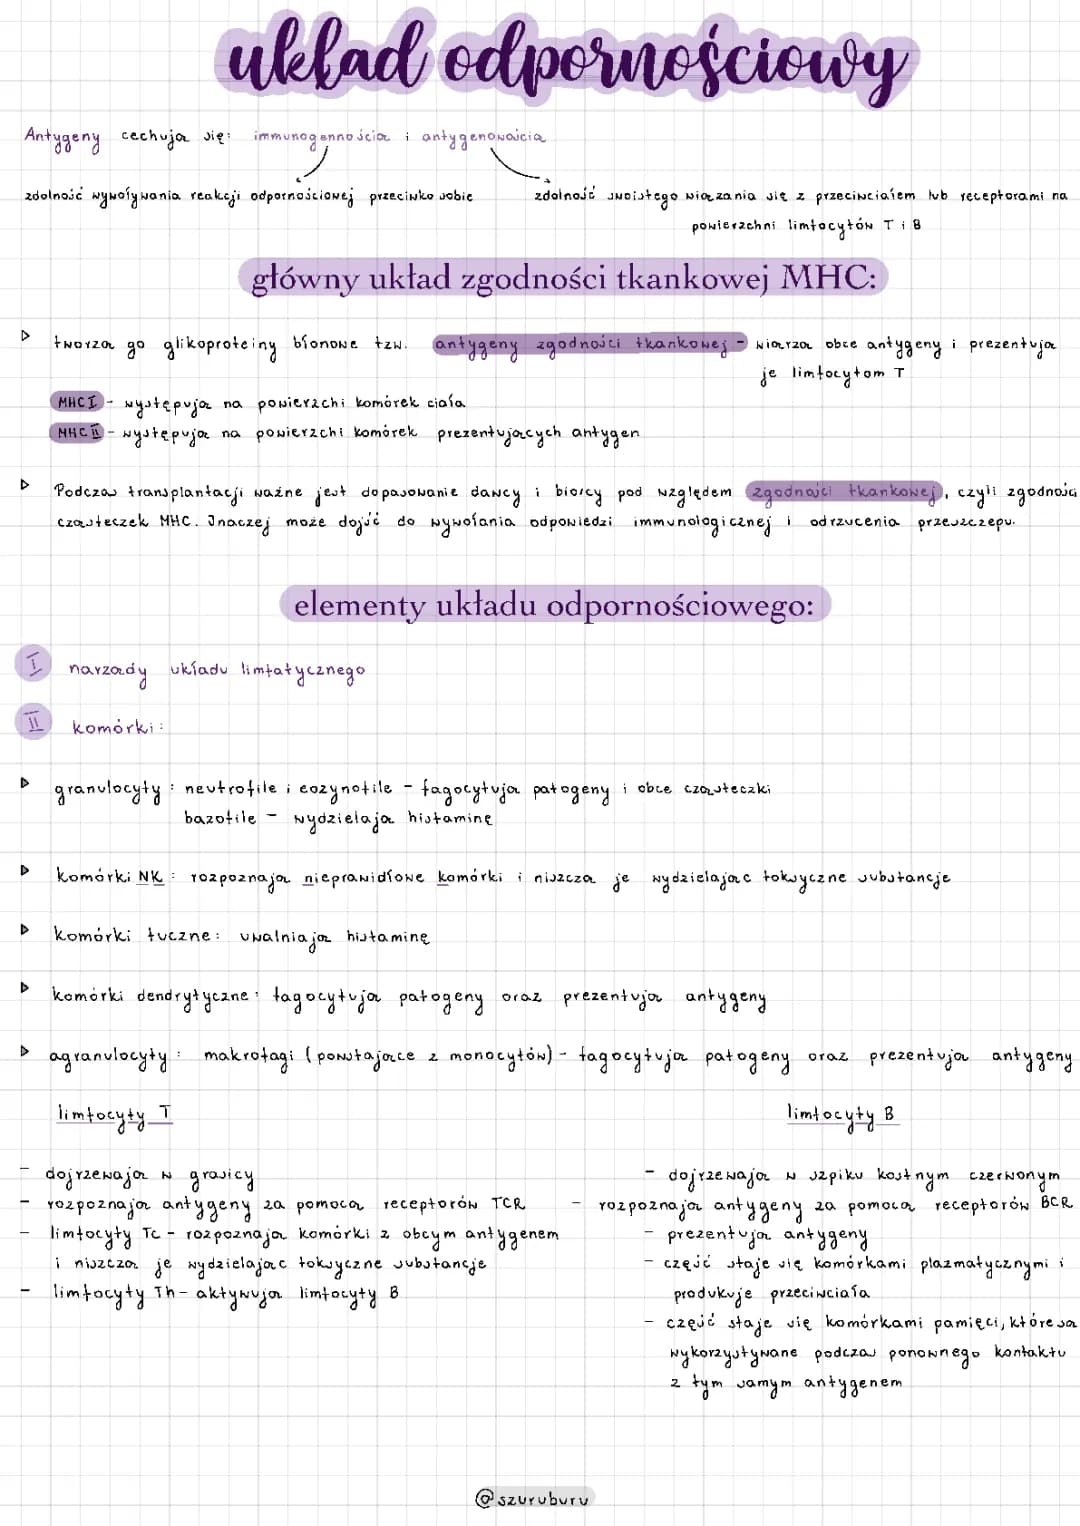 układ odpornościowy
Antygeny cechują się: immunogennością i antygenowością
zdolność wywoływania reakcji odpornościowej przeciwko sobie
zdolność swoistego wiązania się z przeciwciałem lub receptorami na
powierzchni limfocytów T i B
główny układ zgodności tkankowej MHC:
tworzą go glikoproteiny błonowe tzw. antygeny zgodności tkankowej - wiążą obce antygeny i prezentują
je limfocytom T
MHC I - występują na powierzchi komórek ciała
MHC II - występują na powierzchi komórek prezentujących antygen
Podczas transplantacji ważne jest dopasowanie dawcy i biorcy pod względem zgodności tkankowej, czyli zgodność
cząsteczek MHC. Inaczej może dojść do wywołania odpowiedzi immunologicznej i odrzucenia przeszczepu.
elementy układu odpornościowego:
I narządy układu limfatycznego
II komórki:
granulocyty: neutrofile i eozynofile - fagocytują patogeny i obce cząsteczki
bazofile - wydzielają histaminę
komórki NK: rozpoznają nieprawidłowe komórki i niszczą je wydzielając toksyczne substancje
komórki tuczne: uwalniają histaminę
komórki dendrytyczne: fagocytują patogeny oraz prezentują antygeny
agranulocyty: makrofagi (powstające z monocytów) - fagocytują patogeny oraz prezentują antygeny
limfocyty T
- dojrzewają w grasicy
- rozpoznają antygeny za pomocą receptorów TCR
- limfocyty Tc - rozpoznają komórki z obcym antygenem
i niszczą je wydzielając toksyczne substancje
- limfocyty Th - aktywują limfocyty B
limfocyty B
- dojrzewają w szpiku kostnym czerwonym
- rozpoznają antygeny za pomocą receptorów BCR
- prezentują antygeny
- część staje się komórkami plazmatycznymi i
produkuje przeciwciała
- część staje się komórkami pamięci, które są
wykorzystywane podczas ponownego kontaktu
z tym samym antygenem
@szuruburu